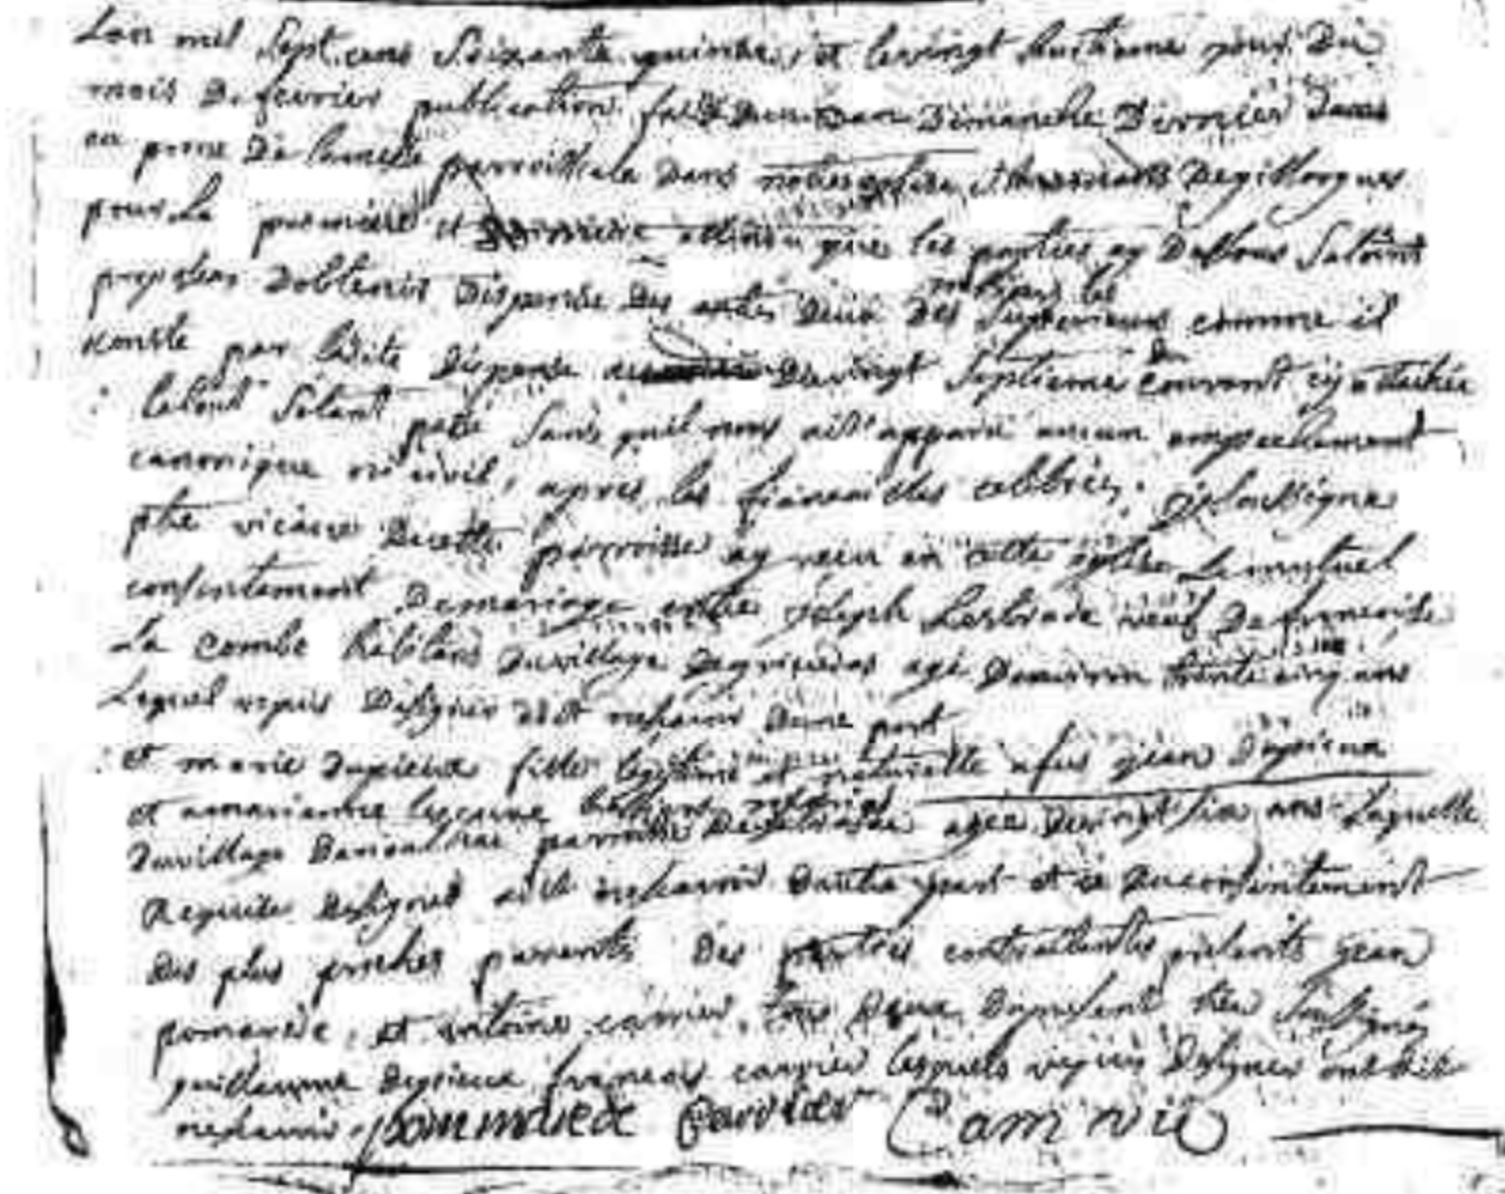 Lan mil sept cens soixante quinze, et le vingt huitieme jour du
mois de fevrier publication faite dun ban dimanche dernier dans
au prone de la messe parroissiale dans notre eglise et
pour la premiere et derniere attendu que les parties cy dessous
proposées dobtenir dispense des autres deux des superieurs comme il
conste par ladite dispense du vingt septieme du courant cy attachée
le tout setant passé sans quil nous ait apparu aucun empechement
canonique ni civil, apres les fiancailles celebrées. Je soussigné
ptre vicaire de cette parroisse ay recu en cette eglise le mutuel
consentement de mariage entre joseph Lestrade veuf de francoise
La combe habitant du village agé denviron trente cinq ans
Lequel requis de signer a dit ne scavoir dune part
et marie dupieux fille legitime et naturelle a feu jean dupieux
et a marianne lescure
du village parroisse agée de vingt six ans Laquelle
Requise de signer a dit ne scavoir dautre part et ce du consentement
des plus proches parents des parties contractantes presents jean
pomarede, et antoine carrier, tous deux soussignés
guillaume dupieux francois carrier lesquels requis de signer ont dit
ne scavoir. pommarede Carrier Cam vic